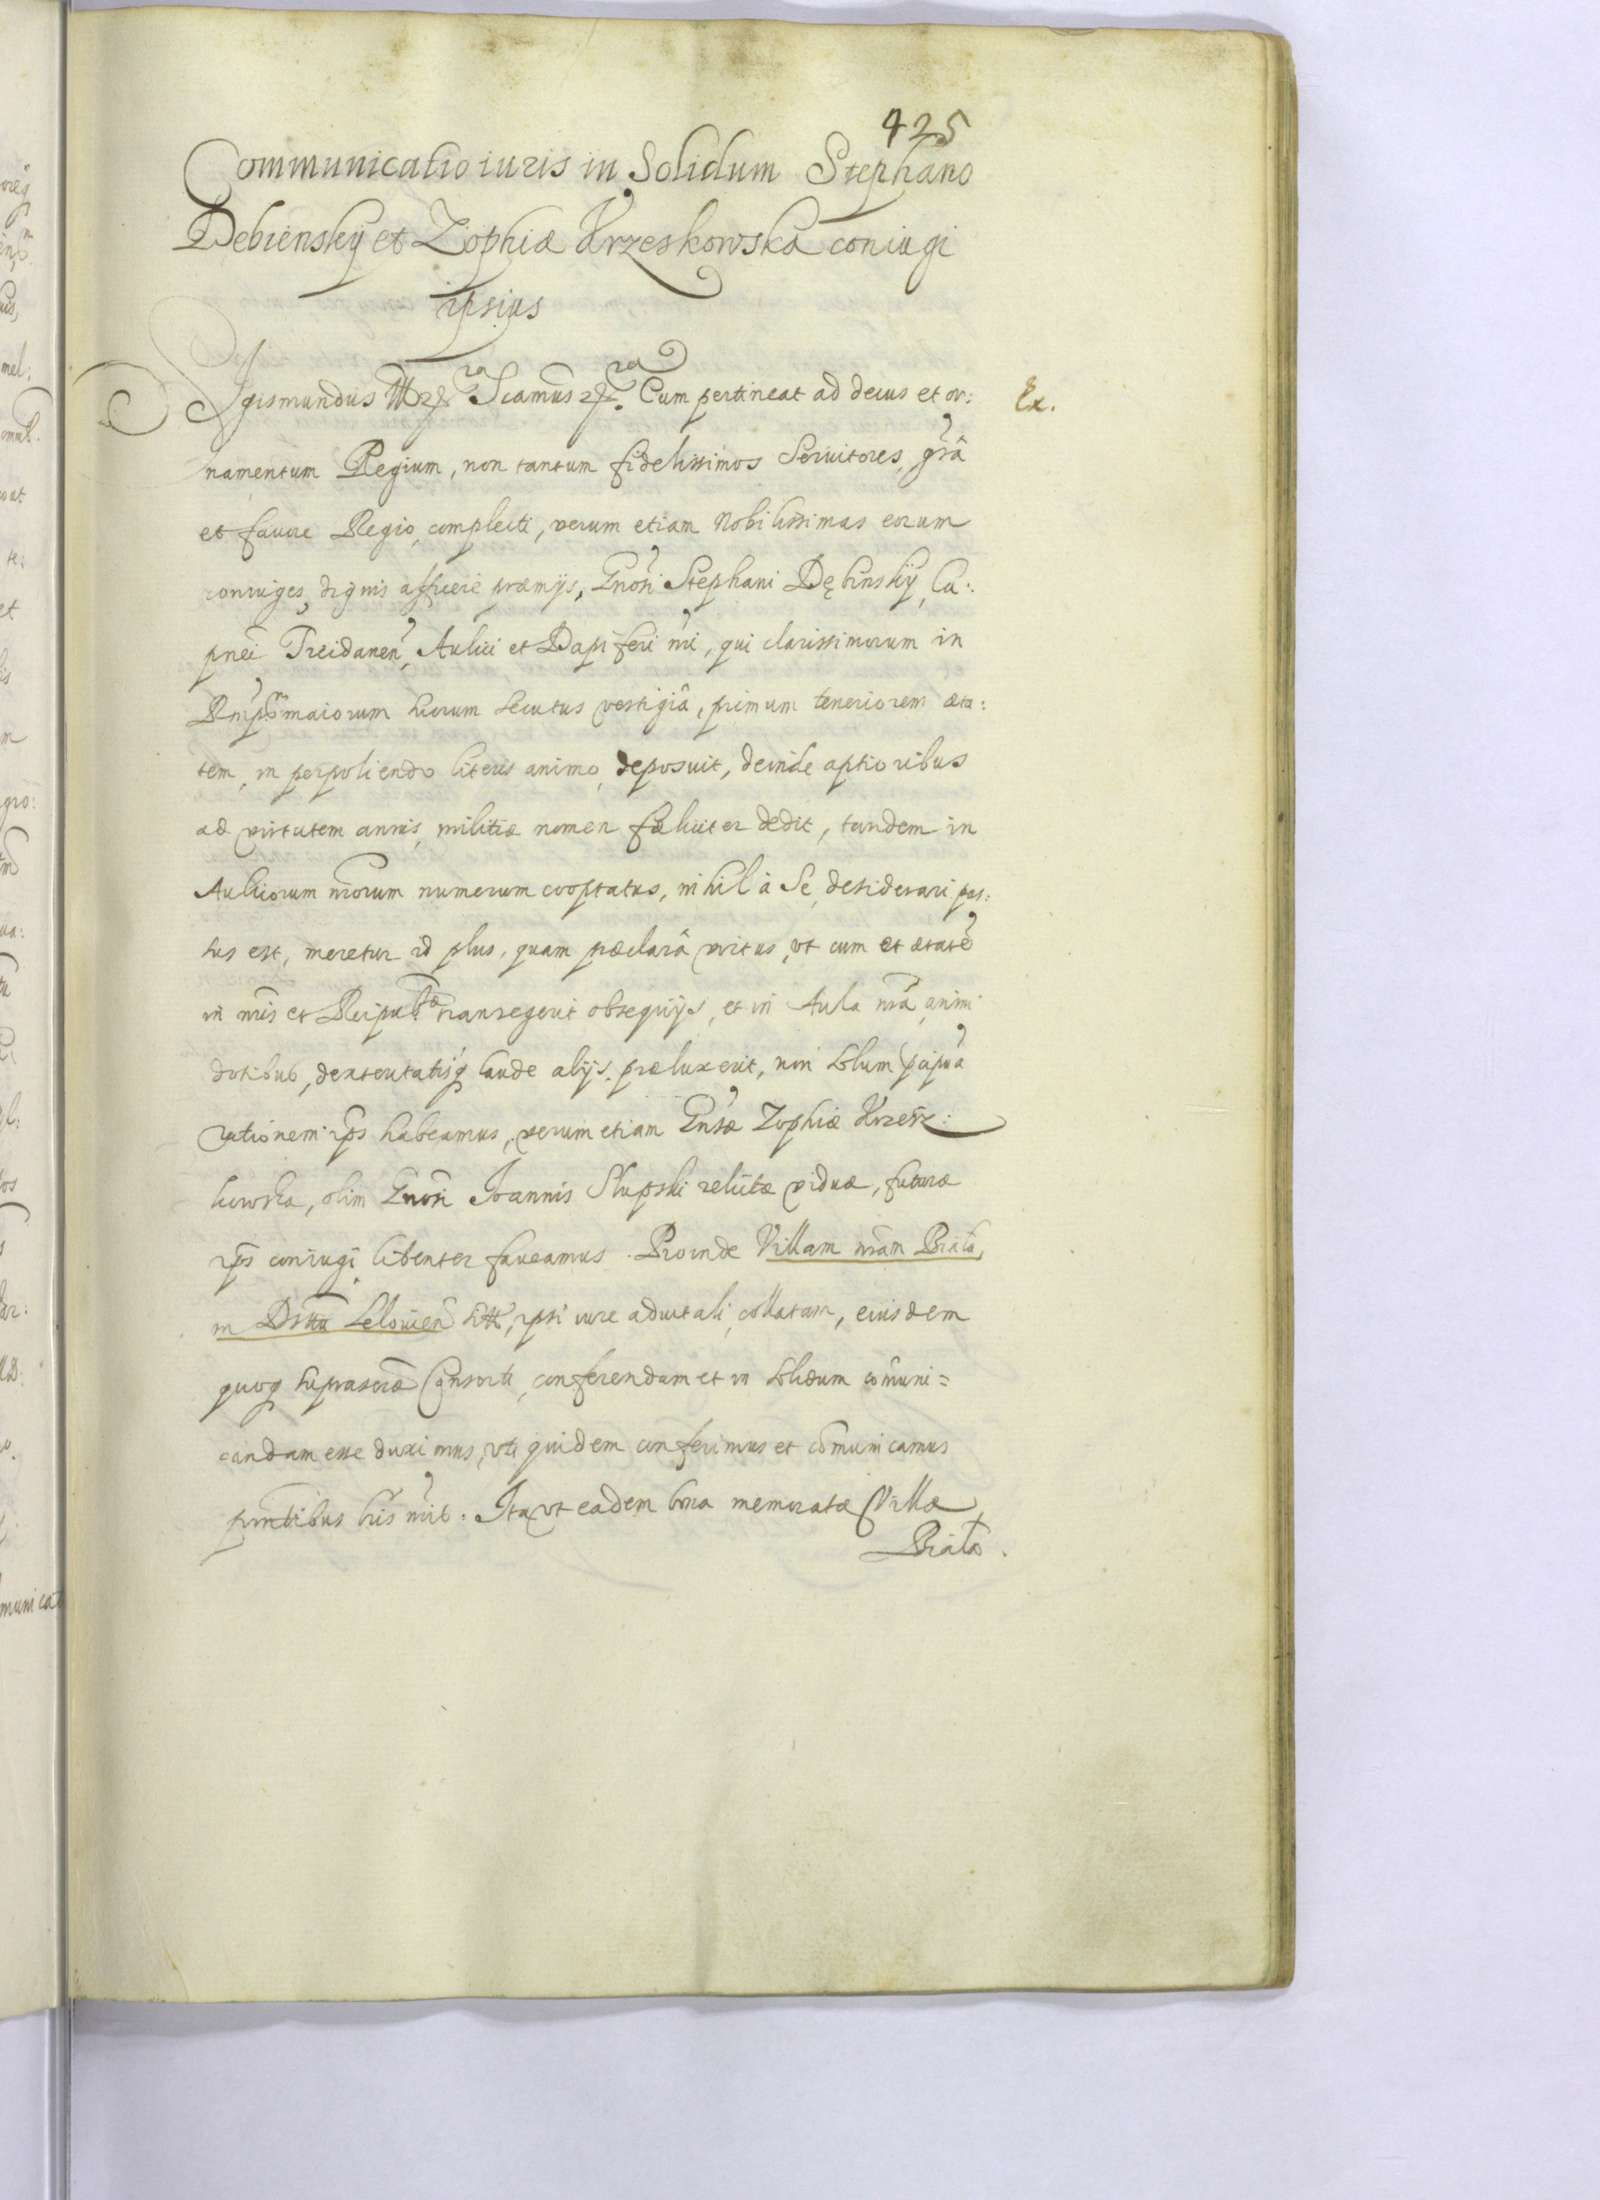 425
Communicatio iuris in Solidum Stephano
Debiensky et Zophiæ Krzeskowska coniugi
ipsius
Sigismundus III Scimus Cum pertineat ad decus et or:
Ex.
namentum Regium, non tantum fidelissimos Seruitores, grâ
et fauore Regio, complecti, verum etiam Nobilissimas eorum
coniuges, dignis afficere præmijs, Gnosi Stephani Dębinsky, Ca:
pnei Treidanen, Aulici et Dapiferi nri, qui clarissimorum in
maiorum suorum secutus vestigiâ, primum teneriorem æta:
tem, in perpoliendo literis animo, deposuit, deinde aptioribus
ad virtutem annis, militiæ nomen fœliciter dedit, tandem in
Aulicorum nrorum numerum cooptatus, nihil à Se, desiderari pas:
sus est, meretur id plus, quam præclarâ virtus, vt cum et ætatê
in nris et Reipub. transegerit obsequijs, et in Aula nrâ, animi
dotibus, dexteritatisq laude alijs præluxerit, non solum
rationem ips habeamus, verum etiam Gnsæ Zophiæ Krzess:
kowska, olim Gnosi Joannis Slupski relictæ viduæ, futuræ
ips coniugi libenter faueamus. Proinde Villam nram Biała,
in Dsttu Leloviên sitt, ipsi iure aduitali, collatam, eiusdem
quoq suprascræ Consorti, conferendam et in solidum cômuni=
candam esse duximus, vti quidem conferimus et cômunicamus
pnntibus his nris. Ita vt eadem bona memoratæ Villæ
Biała.